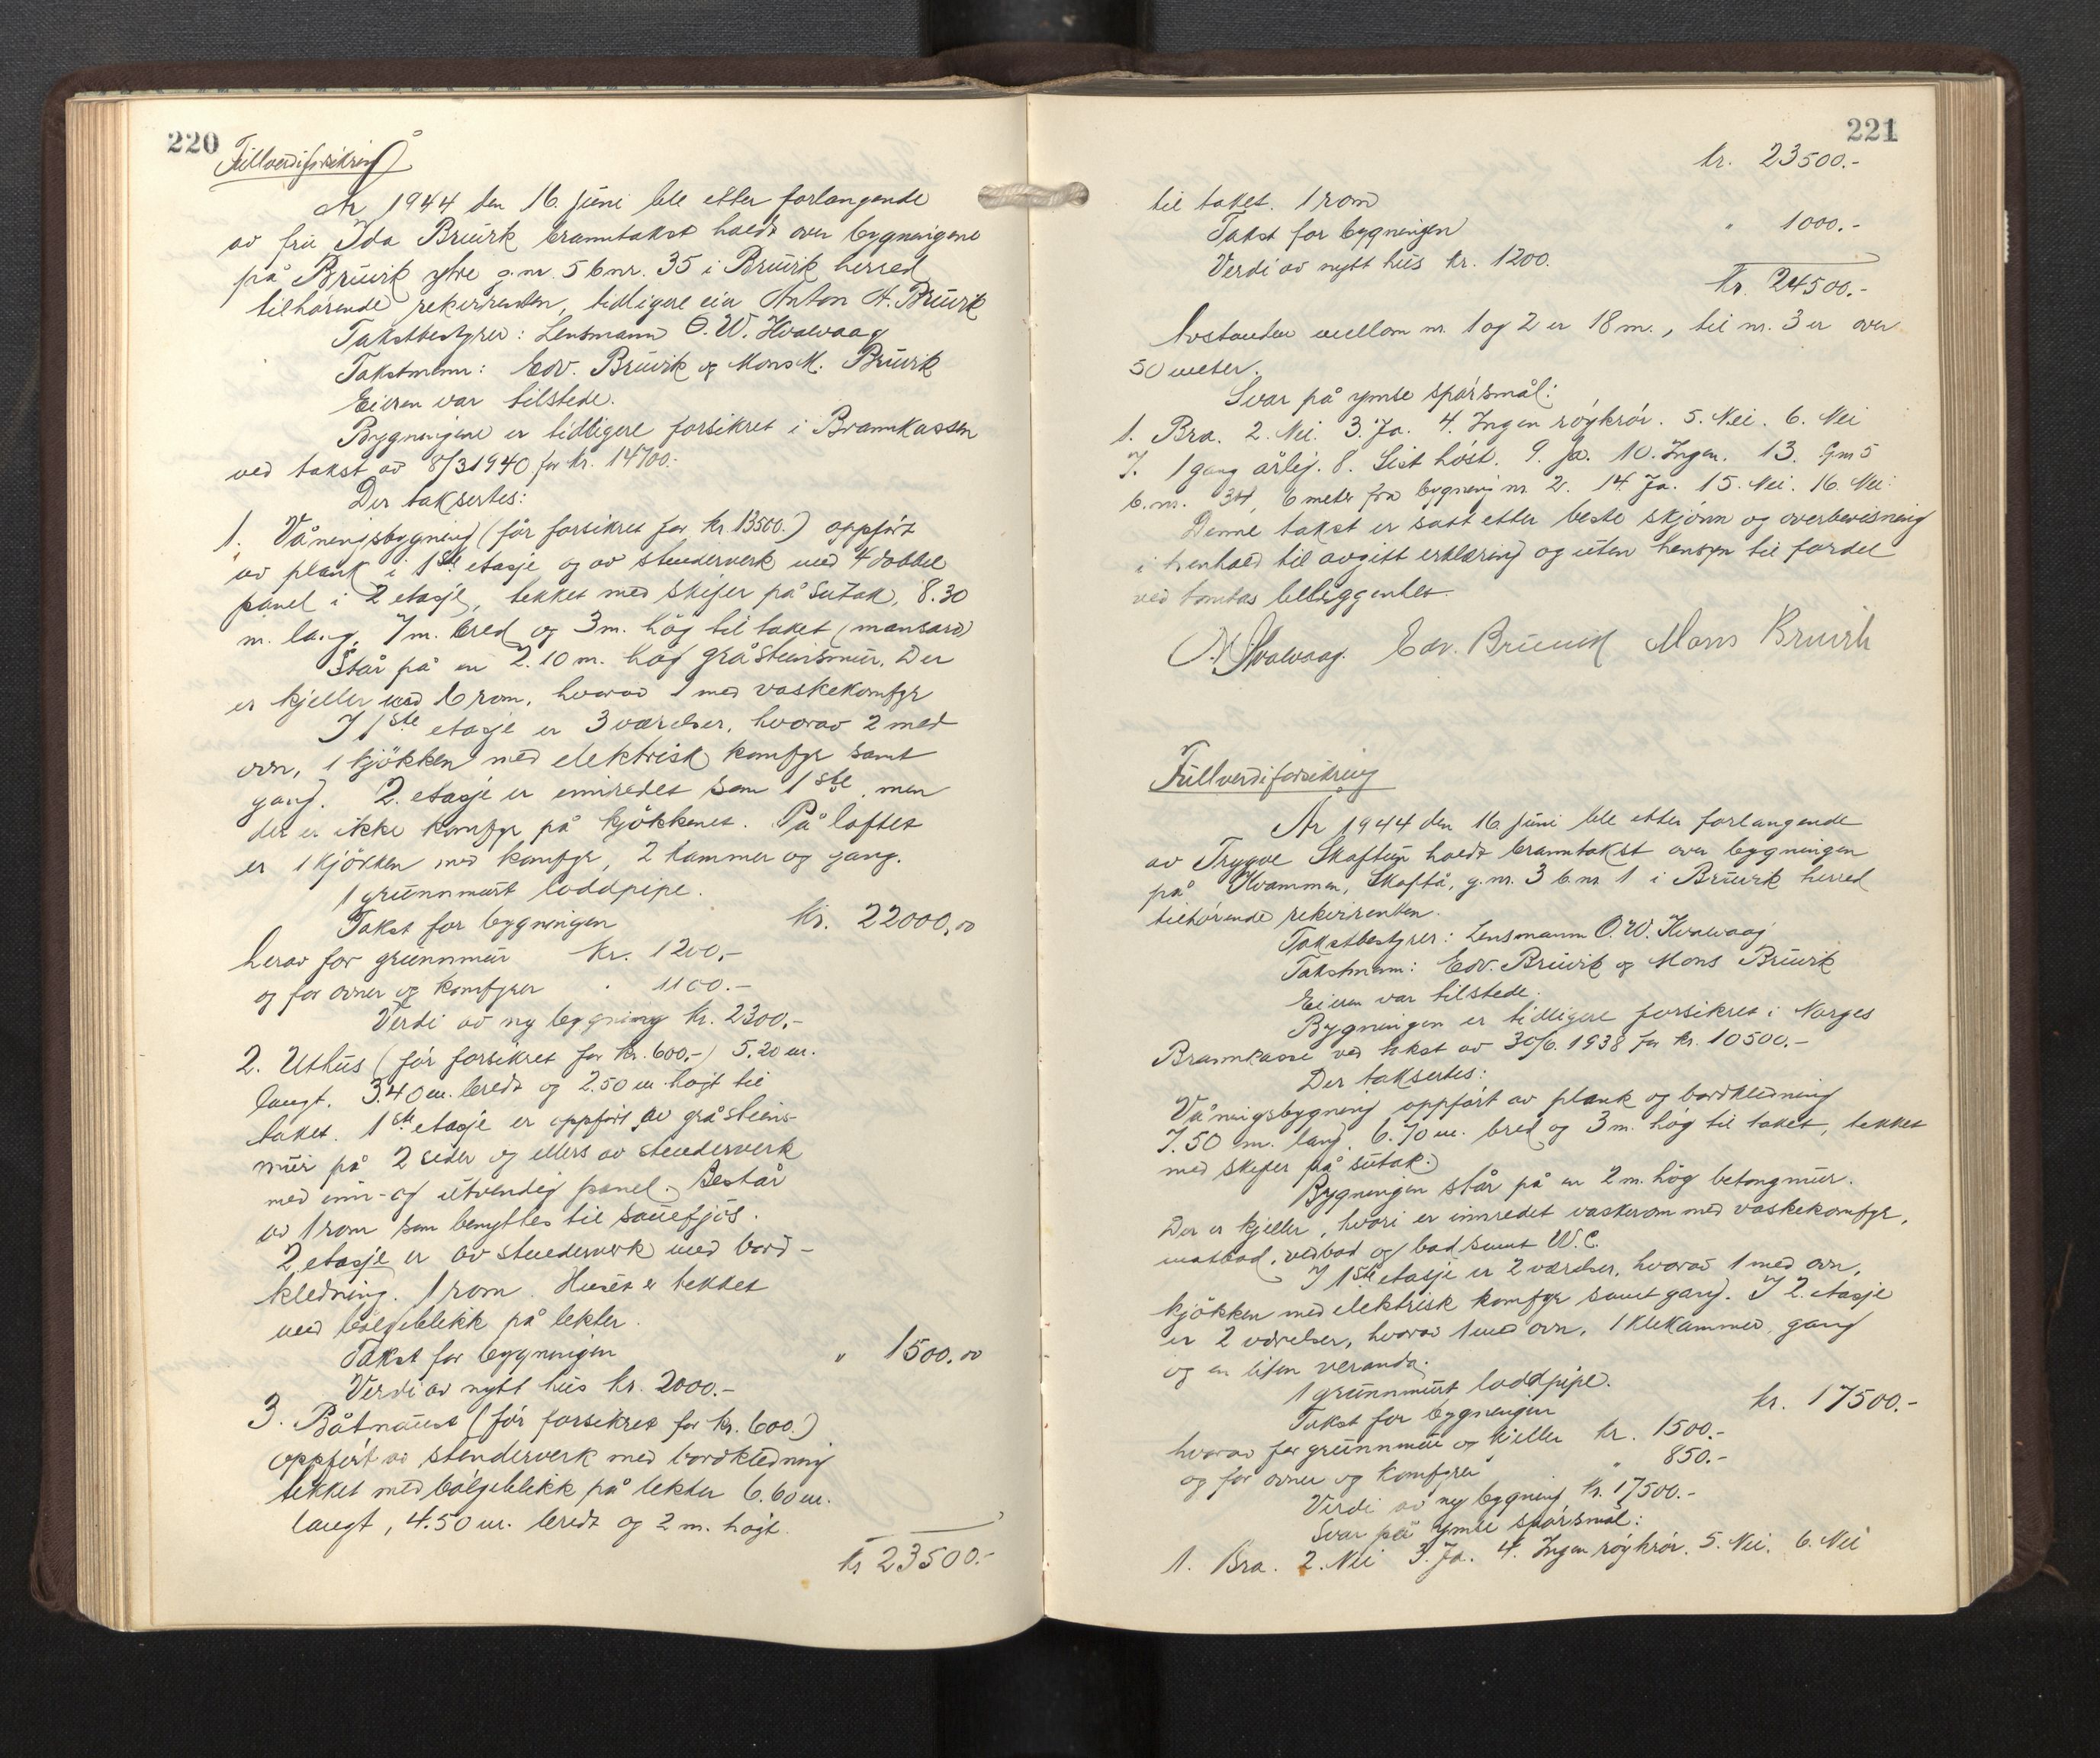 220
Fullverdiforsikring
År 1944 den 16. juni ble etter forlangende
av fru Ida Bruvik branntakst holdt over bygningene
på Bruvik ytre g.nr. 5 b.nr. 35 i Bruvik herred
tilhørende rekvirenten, tidligere eier Anton A. Bruvik
Takstbestyrer: Lensmann O. W. Hvalvaag
Takstmenn: Edv. Bruvik og Mons M. Bruvik
Eieren var tilstede.
Bygningene er tidligere forsikret i Brannkassen
ved takst av 8/3 1940 for kr. 14700.-
Der taksertes:
1. Våningsbygning (før forsikret for kr. 13500.) oppført
av plank i 1ste etasje og av stenderverk med 4 dobbel
panel i 2 etasje, tekket med skifer på sutak, 8.30
m. lang, 7 m. bred og 3 m. høg til taket (mansard)
Står på en 2.10 m. høg gråsteinsmur. Der
er kjeller med 6 rom, hvorav 1 med vaskekomfyr
I 1ste etasje er 3 værelser, hvorav 2 med
ovn, 1 kjøkken med elektrisk komfyr samt
gang. 2. etasje er innredet som 1ste, men
der er ikke komfyr på kjøkkenet. På loftet
er 1 kjøkken med komfyr, 2 kammer og gang.
1 grunnmurt loddpipe.
Takst for bygningen kr. 22000,00
herav for grunnmur kr. 1200,-
og for ovner og komfyrer " 1100.-
Verdi av ny bygning kr. 2300,-
2. Uthus (før forsikret for kr. 600,-) 5.20 m.
langt. 3.40 m. bredt og 2.50 m. høgt til
taket. 1ste etasje er oppført av gråsteins-
mur på 2 sider og ellers av stenderverk
med inn- og utvendig panel. Består
av 1 rom som benyttes til sauefjøs.
2 etasje er av stenderverk med bord-
kledning. 1 rom. Huset er tekket
med bølgeblikk på lekter.
Takst for bygningen " 1500.00
Verdi av nytt hus kr. 2000.-
3. Båtnaust (før forsikret for kr. 600.)
oppført av stenderverk med bordkledning
tekket med bølgeblikk på lekter 6.60 m.
langt, 4.50 m. bredt og 2 m. høgt
kr 23500.-
221
kr. 23500.-
til taket. 1 rom
Takst for bygningen " 1000.-
Verdi av nytt hus kr. 1200.
kr. 24500.-
Avstanden mellom nr. 1 og 2 er 18 m., til nr. 3 er over
50 meter.
Svar på ymse spørsmål:
1. Bra. 2. Nei. 3. Ja. 4. Ingen røykrør. 5. Nei. 6. Nei
7. 1 gang årlig. 8. Sist høst. 9. Ja. 10. Ingen. 13. Gnr 5
b.nr. 34, 6 meter fra bygning nr. 2. 14. Ja. 15. Nei. 16. Nei.
Denne takst er satt etter beste skjønn og overbevisning
i henhold til avgitt erklæring og uten hensyn til fordel
ved tomtas beliggenhet.
O. W. Hvalvaag. Edv. Bruvik Mons Bruvik
Fullverdiforsikring
År 1944 den 16 juni ble etter forlangende
av Trygve Skaftun holdt branntakst over bygningen
på Kvammen, Skaftå, g.nr. 3 b.nr 1 i Bruvik herred
tilhørende rekvirenten.
Takstbestyrer: Lensmann O. W. Hvalvaag
Takstmenn: Edv. Bruvik og Mons Bruvik
Eieren var tilstede.
Bygningen er tidligere forsikret i Norges
Brannkasse ved takst av 30/6. 1938 for kr. 10500.-
Der taksertes:
Våningsbygning oppført av plank og bordkledning
7.50 m. lang, 6.70 m. bred og 3 m. høg til taket, tekket
med skifer på sutak.
Bygningen står på en 2 m. høg betongmur.
Der er kjeller, hvori er innredet vaskerom med vaskekomfyr,
matbod, vedbod og bad samt W.C.
I 1ste etasje er 2 værelser, hvorav 1 med ovn,
kjøkken med elektrisk komfyr samt gang. I 2. etasje
er 2 værelser, hvorav 1 med ovn, 1 klekammer, gang
og en liten veranda.
1 grunnmurt loddpipe.
Takst for bygningen kr. 17500.-
hvorav for grunnmur og kjeller kr. 1500.-
og for ovner og komfyrer " 850.-
Verdi av ny bygning kr. 17500.-
Svar på ymse spørsmål:
1. Bra. 2. Nei 3. Ja. 4. Ingen røykrør. 5. Nei. 6. Nei